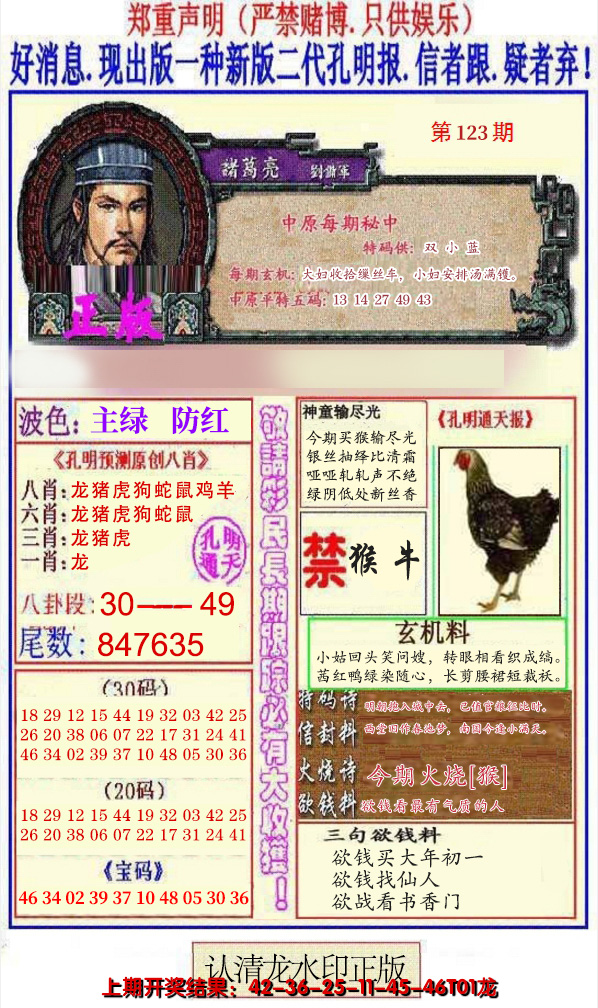 郑重声明（严禁赌博.只供娱乐）
好消息.现出版一种新版二代孔明报.信者跟.疑者弃!
第123期
諸葛亮 劉備軍
中原每期秘中
特码供: 双小蓝
每期玄机: 大妇收拾缫丝车，小妇安排汤满镬。
中原平特五码: 13 14 27 49 43
正版
波色: 主绿 防红
《孔明预测原创八肖》
八肖:龙猪虎狗蛇鼠鸡羊
六肖:龙猪虎狗蛇鼠
三肖:龙猪虎
一肖:龙
孔明
通天
八卦段:30——49
尾数: 847635
(30码)
18 29 12 15 44 19 32 03 42 25
26 20 38 06 07 22 17 31 24 41
46 34 02 39 37 10 48 05 30 36
(20码)
18 29 12 15 44 19 32 03 42 25
26 20 38 06 07 22 17 31 24 41
《宝码》
46 34 02 39 37 10 48 05 30 36
敬請彩民長期跟踪必有大收獲!
神童输尽光
今期买猴输尽光
银丝抽绎比清霜
哑哑轧轧声不绝
绿阴低处新丝香
《孔明通天报》
禁 猴 牛
玄机料
小姑回头笑问嫂，转眼相看织成缟。
茜红鸭绿染随心，长剪腰裙短裁袄。
特码诗 明朝拖入城中去，已值官粮征比时。
信封料 西堂旧作春池梦，南国今逢小满天。
火烧诗 今期火烧[猴]
欲钱料 欲钱看最有气质的人
三句欲钱料
欲钱买大年初一
欲钱找仙人
欲战看书香门
认清龙水印正版
上期开奖结果：42-36-25-11-45-46T01龙